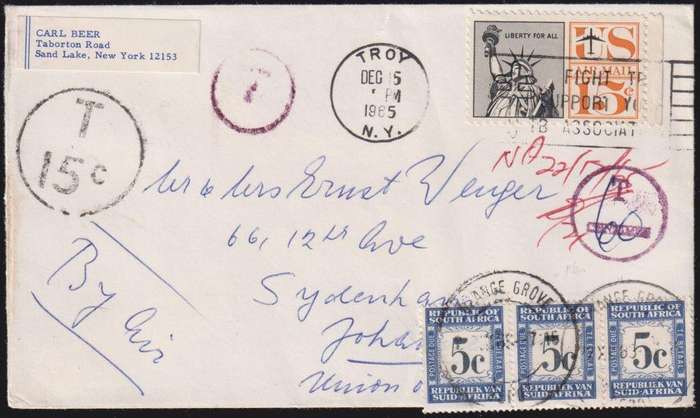 CARL BEER
Taborton Road
Sand Lake, New York 12153
T
15c
T
TROY
DEC 15
PM
1965
N.Y.
LIBERTY FOR ALL
US
AIR MAIL
15c
FIGHT TB
SUPPORT YOUR
TB ASSOCIAT
NA 22/12/65
T
60
Mr & Mrs Ernst Wenger
66, 12th Ave
Sydenham
Johan
Union o
By Air
ORANGE GROVE
ANGE GROVE
REPUBLIC OF
SOUTH AFRICA
POSTAGE DUE
5c
TE BETAAL
REPUBLIEK VAN
SUID-AFRIKA
REPUBLIC OF
SOUTH AFRICA
POSTAGE DUE
5c
TE BETAAL
REPUBLIEK VAN
SUID-AFRIKA
REPUBLIC OF
SOUTH AFRICA
POSTAGE DUE
5c
TE BETAAL
REPUBLIEK VAN
SUID-AFRIKA